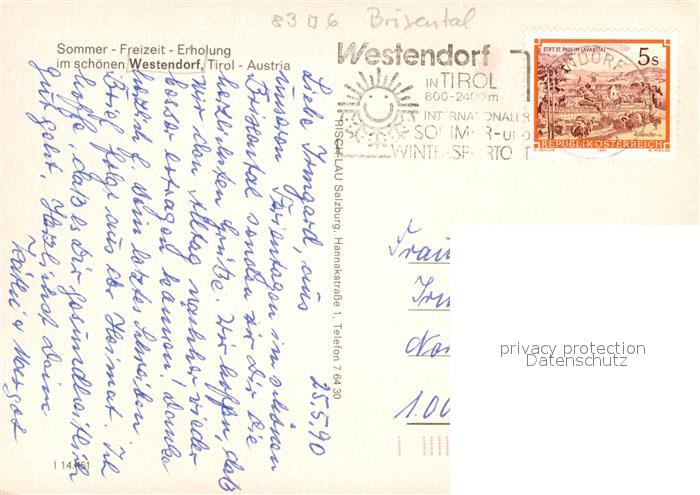 8306 Brixental
Sommer - Freizeit - Erholung
im schönen Westendorf, Tirol - Austria
Westendorf
IN TIROL
800-2400m
INTERNATIONALER
SOMMER-UND
WINTERSPORTORT
STIFT ST. PAUL IM LAVANTTAL
5s
REPUBLIK ÖSTERREICH
25.5.90
Liebe Irmgard, aus
unseren Ferientagen im schönen
Brixental senden wir Dir die
herzlichsten Grüße. Wir hoffen, daß
wir den Alltag nachher wieder
besser ertragen können! Danke
herzlich f. Dein letztes Schreiben
Brief folgt aus der Heimat. Ich
hoffe, daß es Dir gesundheitlich
gut geht. Herzlichst Deine
Margot
RISCH-LAU Salzburg, Hannakstraße 1, Telefon 7 64 30
Frau
I 14.451
privacy protection
Datenschutz